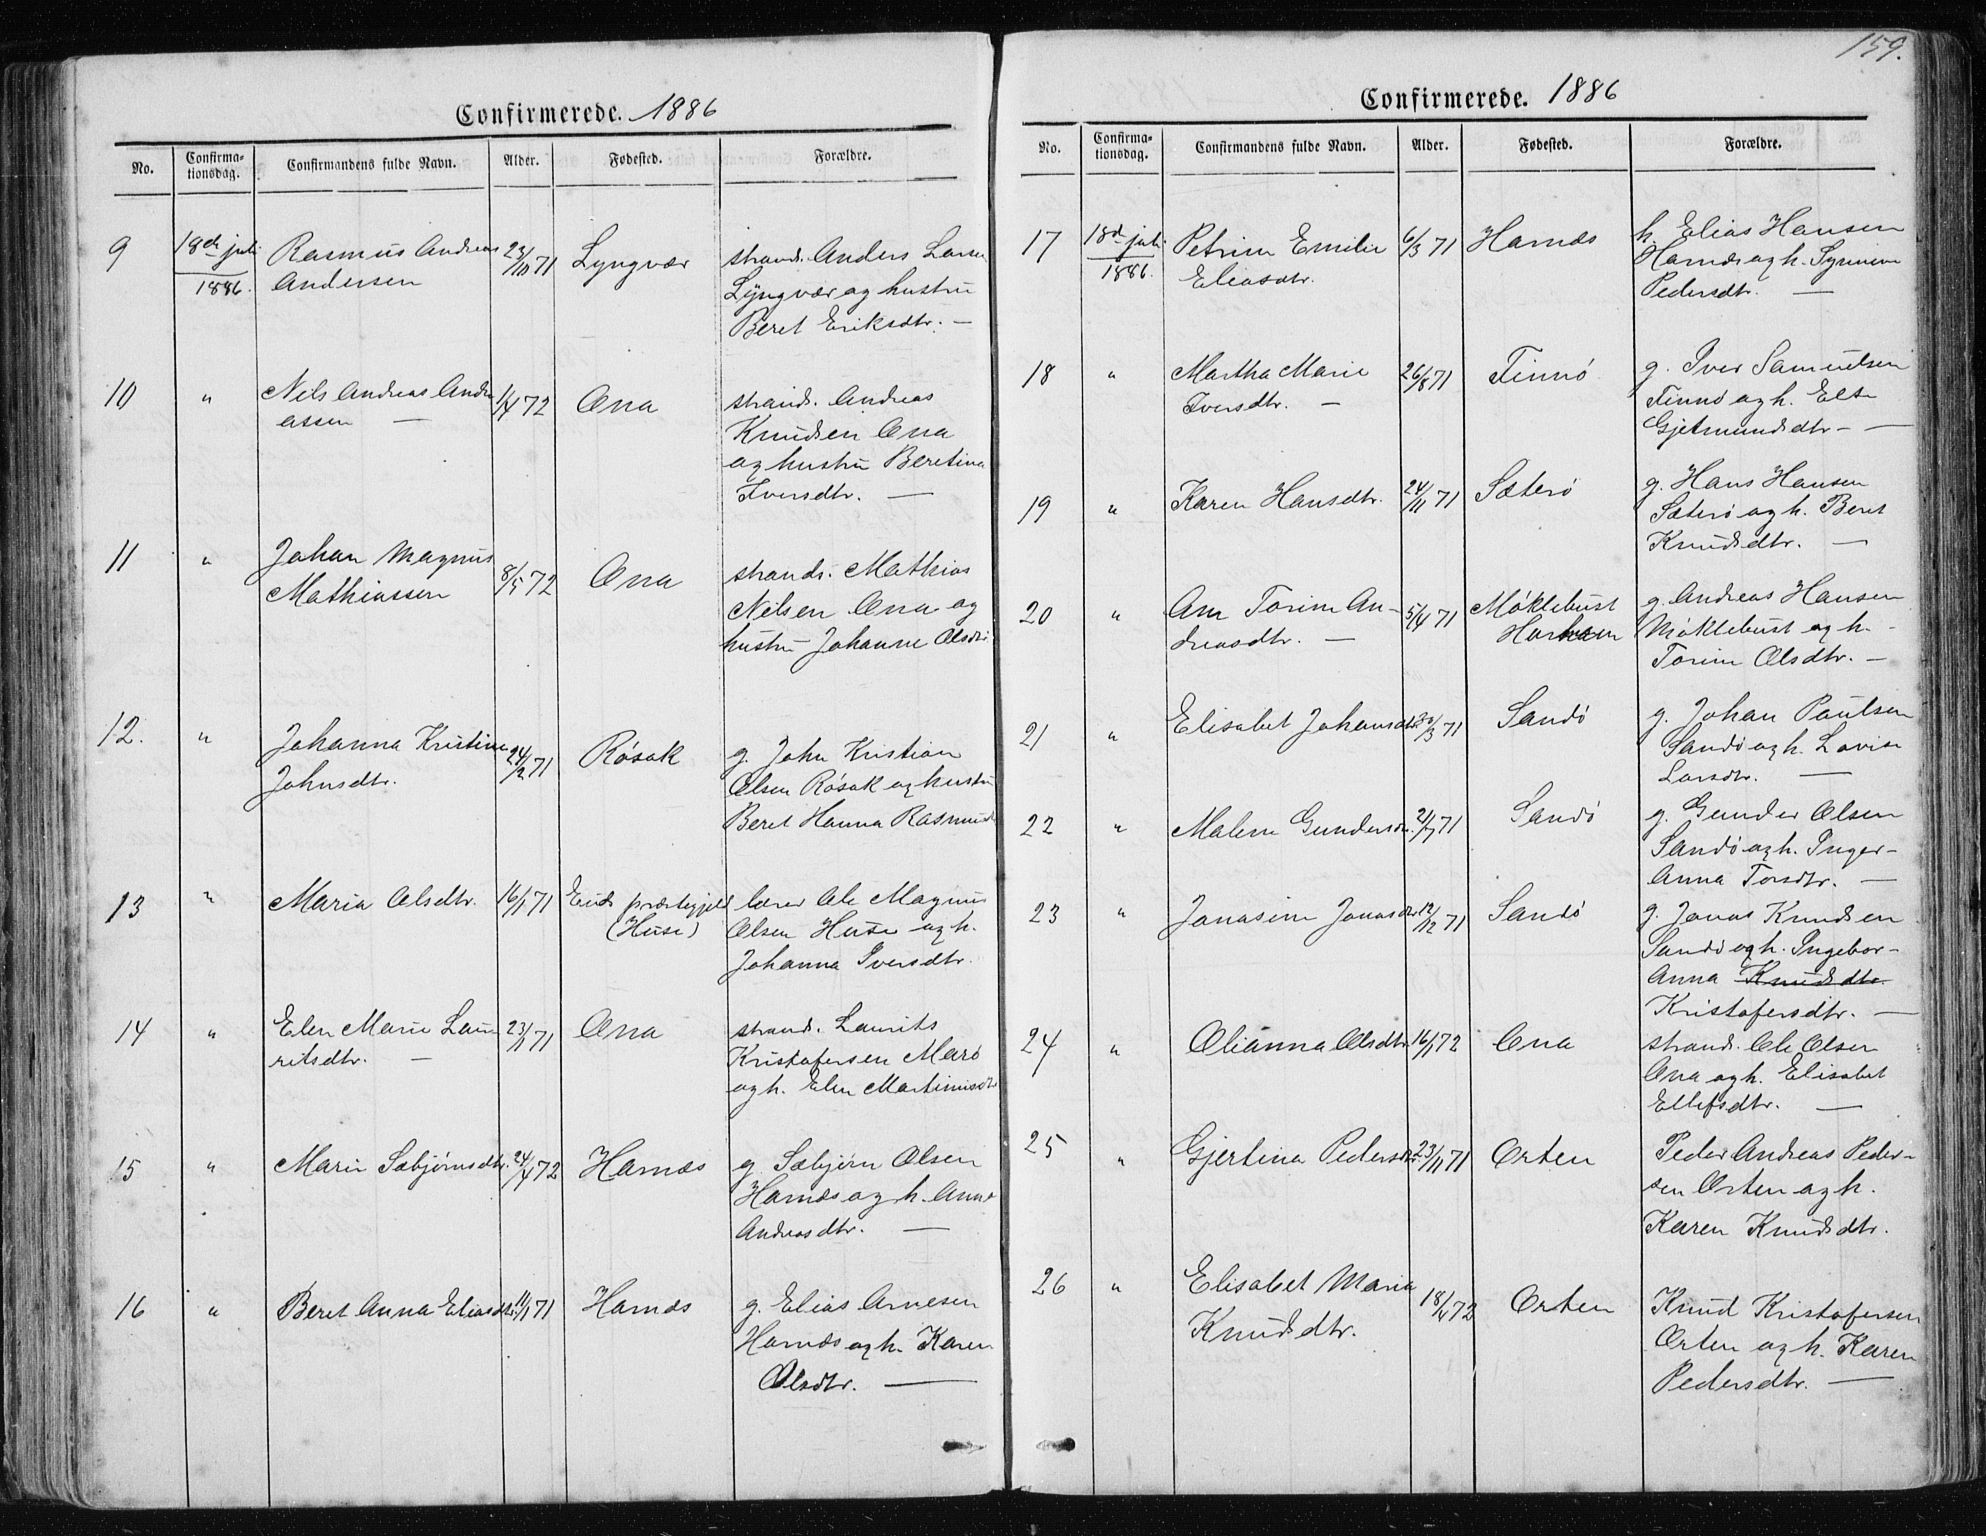 159.
Confirmerede. 1886
No. Confirma- Confirmandens fulde Navn. Alder. Fødested. Forældre.
tionsdag.
9 18de juli Rasmus Andreas 23/10 71 Lyngvær strands. Anders Larsen
1886. Andersen Lyngvær og hustru
Beret Eriksdtr. —
10 " Nils Andreas Andre 1/4 72 Ona strands. Andreas
assen — Knudsen Ona
og hustru Beretina
Iversdtr. —
11 " Johan Magnus 8/5 72 Ona strands. Mathias
Mathiassen Nilsen Ona og
hustru Johanne Olsdtr.
12. " Johanna Kristina 24/12 71 Røsok g. John Kristian
Johnsdtr. Olsen Røsok og hustru
Beret Hanna Rasmusd
13 " Maria Olsdtr. 16/1 71 Eids præstegjeld lærer Ole Magnus
(Huse) Olsen Huse og h.
Johanna Iversdtr.
14 " Elen Marie Lau 23/1 71 Ona strands. Laurits
ritsdtr. — Kristofersen Marø
og h. Elen Martinusdtr
15 " Marie Sæbjørnsdtr. 24/4 72 Harnæs g. Sæbjørn Olsen
Harnæs og h. Anne
Andreasdtr. —
16 " Beret Anna Eliasdtr. 11/1 71 Harnæs g. Elias Arnesen
Harnæs og h. Karen
Olsdtr. —
Confirmerede. 1886
No. Confirma- Confirmandens fulde Navn. Alder. Fødested. Forældre.
tionsdag.
17 18de juli Petrine Emilie 6/3 71 Harnæs h. Elias Hansen
1886. Eliasdtr. Harnæs og h. Synneve
Pedersdtr. —
18 " Martha Marie 26/8 71 Finnø g. Iver Samuelsen
Iversdtr. — Finnø og h. Else
Gjetmundsdtr. —
19 " Karen Hansdtr. 24/11 71 Sæterø g. Hans Hansen
Sæterø og h. Beret
Knudsdtr. —
20 " Ane Torine An- 5/4 71 Møklebust g. Andreas Hansen
dreasdtr. — Harham Møklebust og h.
Torine Olsdtr. —
21 " Elisabet Johansdtr 30/3 71 Sandø g. Johan Paulsen
Sandø og h. Lovise
Larsdtr. —
22 " Malene Gundersdtr. 21/7 71 Sandø g. Gunder Olsen
Sandø og h. Inger-
Anna Torsdtr. —
23 " Jonasine Jonasdtr 12/12 71 Sandø g. Jonas Knudsen
Sandø og h. Ingebor-
Anna Knudsdtr.
Kristofersdtr. —
24 " Olianna Olsdtr. 16/1 72 Ona strands. Ole Olsen
Ona og h. Elisabet
Ellefsdtr. —
25 " Gjertina Pedersdtr. 23/11 71 Orten Peder Andreas Peder-
sen Orten og h.
Karen Knudsdtr.
26 " Elisabet Maria 18/4 72 Orten Knud Kristofersen
Knudsdtr. Orten og h. Karen
Pedersdtr. —